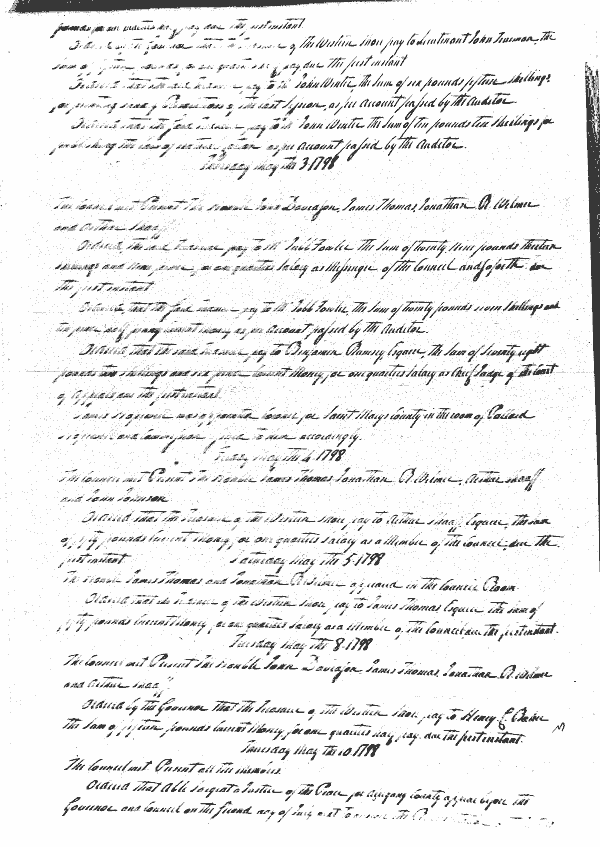 pay due the first instant.
Ordered that the Treasurer of the Western Shore pay to Lieutenant John Truman, the
sum of fifteen pounds, for one quarters pay due the first instant
Ordered that the said Treasurer pay to Mr John Winter, the sum of six pounds fifteen shillings,
for printing of the last Session, as per Account passed by the Auditor
Ordered that the said Treasurer pay to Mr John Winter the sum of ten pounds ten shillings for
as per Account passed by the Auditor.
Thursday May the 3. 1798
The Council met Present The Honble John Davidson, James Thomas, Jonathan R Wilmer
and Arthur Shaaff
Ordered, the said Treasurer pay to Mr Jubb Fowler the sum of twenty nine pounds thirteen
shillings and nine pence, for one quarters Salary as Messenger of the Council and so forth due
the first instant
Ordered, that the said Treasurer pay to Mr Jubb Fowler, the sum of twenty pounds seven shillings and
ten pence half penny current money as per Account passed by the Auditor.
Ordered that the said Treasurer pay to Benjamin Rumsey Esquire, the sum of Seventy eight
pounds two shillings and six pence Current Money, for one quarters Salary as Chief Judge of the Court
of Appeals due the first instant.
James was appointed Coroner for Saint Marys County in the room of
and Commission issued to him accordingly.
Friday May the 4 1798
The Council met Present The Honble James Thomas, Jonathan R Wilmer, Arthur Shaaff
and John Johnson
Ordered that the Treasurer of the Western Shore pay to Arthur Shaaff Esquire, the sum
of fifty pounds Current Money, for one quarters salary as a Member of the Council, due the
first instant
Saturday May the 5. 1798
The Honble James Thomas and Jonathan R Wilmer appeared in the Council Room.
Ordered that the Treasurer of the Western Shore pay to James Thomas Esquire the sum of
fifty pounds Current Money for one quarters salary as a Member of the Council due the first instant.
Tuesday May the 8. 1798
The Council met Present The Honble John Davidson, James Thomas, Jonathan R Wilmer
and Arthur Shaaff
Ordered by the Governor that the Treasurer of the Western Shore pay to Henry C
the sum of fifteen pounds Current Money for one quarters pay due the first instant.
Thursday May the 10 1798
The Council met Present all the members.
Ordered that Able Sargeat a Justice of the Peace for Allegany County appear before the
Governor and Council on the second day of July next to answer the